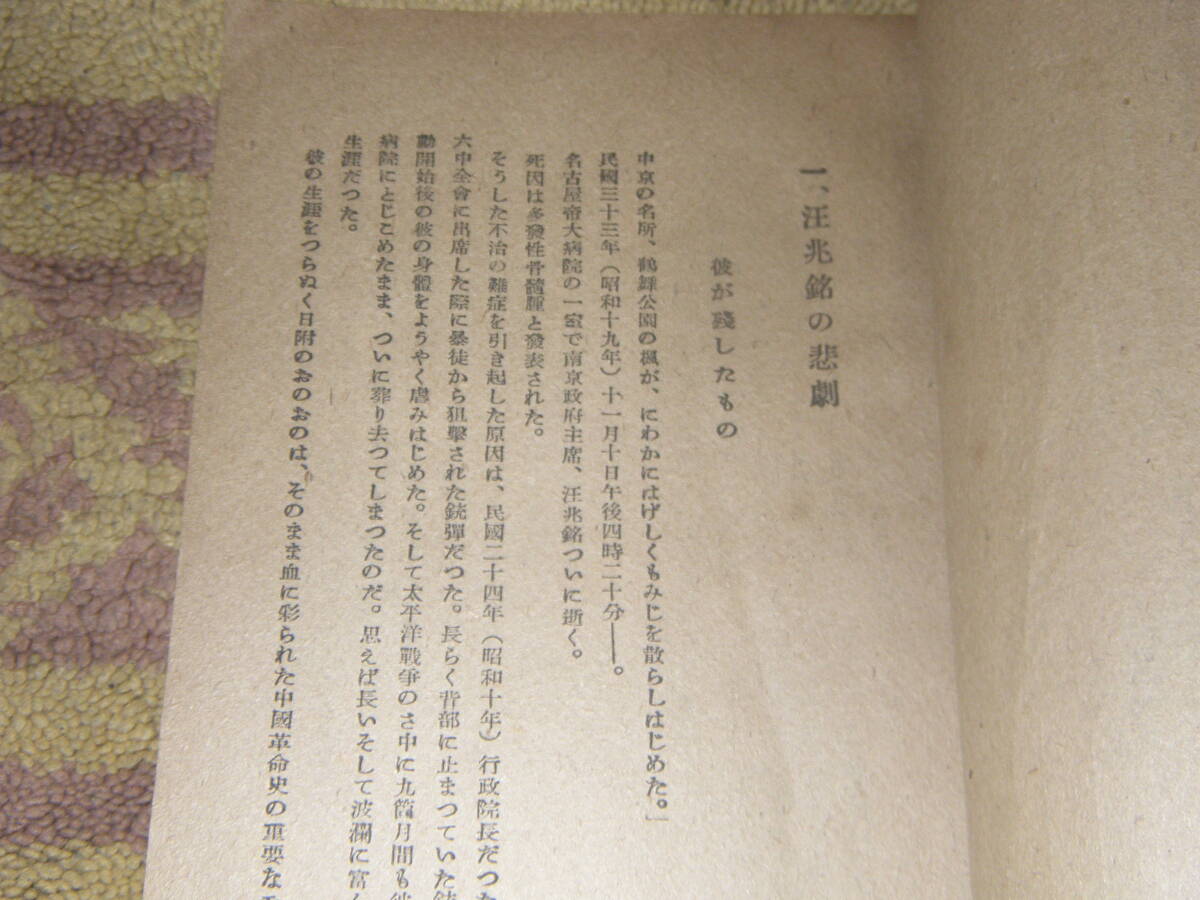 一、汪兆銘の悲劇
彼が殘したもの
中京の名所、鶴舞公園の楓が、にわかにはげしくもみじを散らしはじめた。
民國三十三年（昭和十九年）十一月十日午後四時二十分――。
名古屋帝大病院の一室で南京政府主席、汪兆銘ついに逝く。
死因は多發性骨髓腫と發表された。
そうした不治の難症を引き起した原因は、民國二十四年（昭和十年）行政院長だつた
六中全會に出席した際に暴徒から狙擊された銃彈だつた。長らく背部に止まつていた
動開始後の彼の身體をようやく虐みはじめた。そして太平洋戰爭のさ中に九箇月間も
病院にとじこめたまま、ついに葬り去つてしまつたのだ。思えば長いそして波瀾に富
生涯だつた。
彼の生涯をつらぬく日附のおのおのは、そのまま血に彩られた中國革命史の重要な